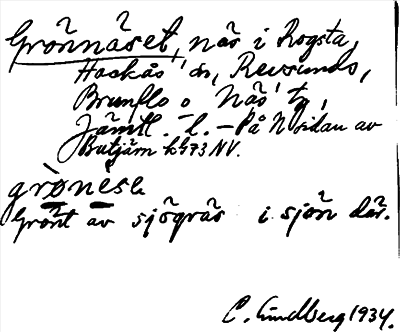 Grönnäset, näs i Rogsta,
Hackås sn, Revsunds,
Brunflo o Näs' tg,
Jämtl. l. – På N sidan av
Butjärn k473 NV.
grònèse
Grönt av sjögräs i sjön där.
C. Lindberg 1934.